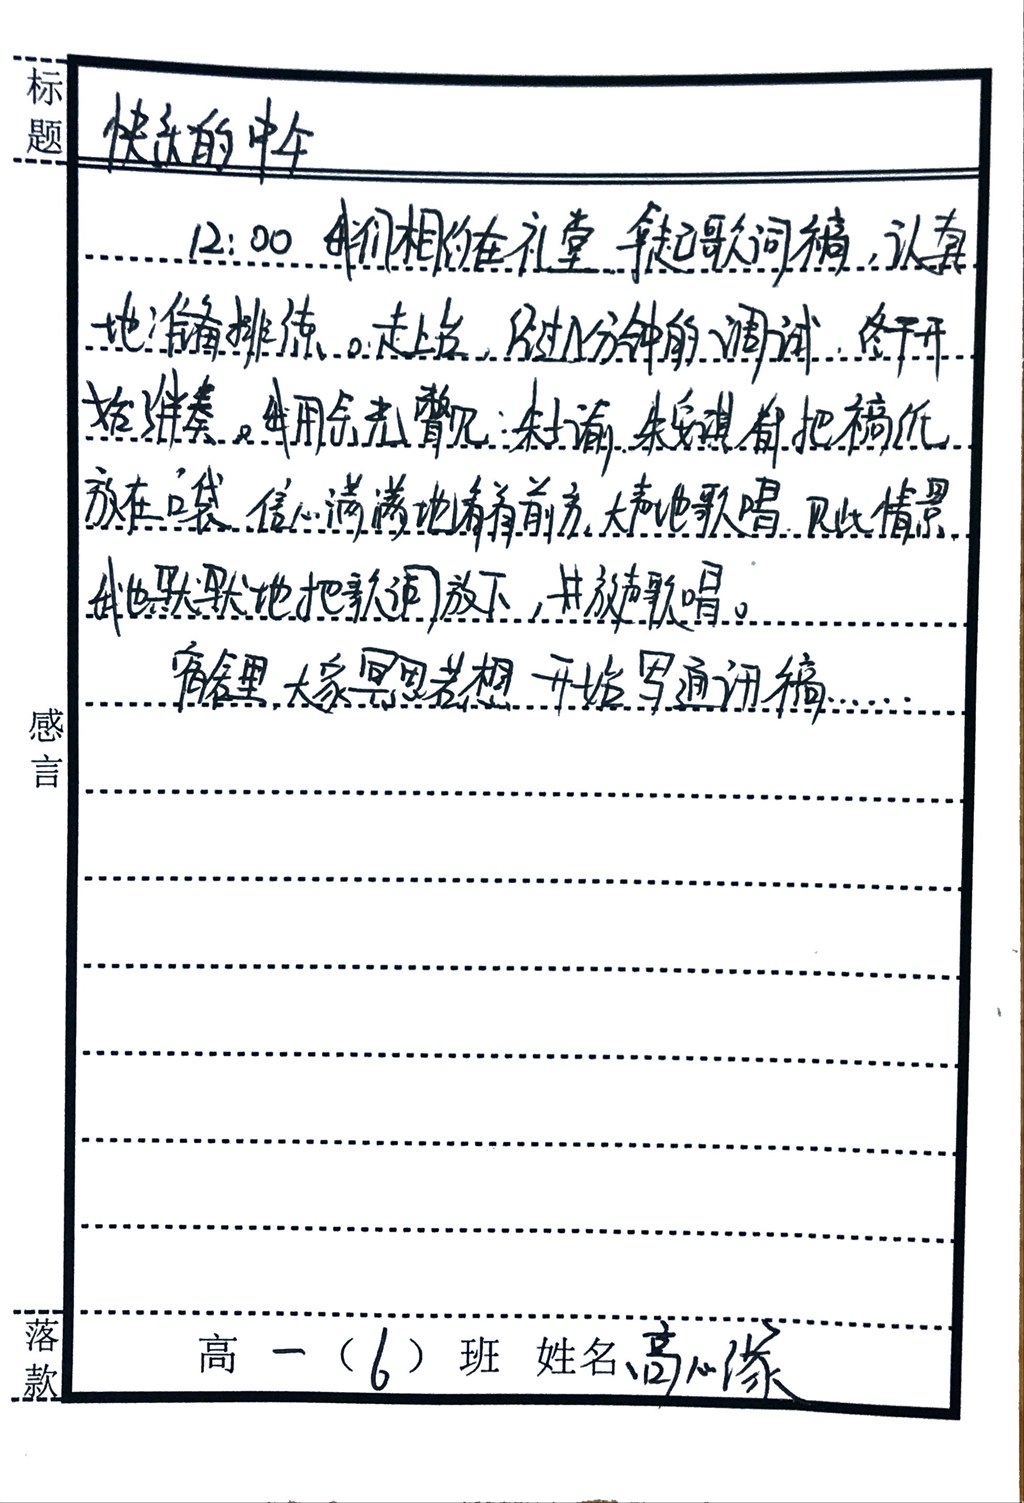 标题
快乐的中午
12:00 我们相约在礼堂 拿起歌词稿,认真
地准备排练。走上台,经过几分钟的调试,终于开
始弹奏。我用余光瞥见:朱瑜、朱安淇都把稿纸
放在口袋 信心满满地看着前方,大声地歌唱,见此情景,
我也默默地把歌词放下,并放声歌唱。
宿舍里,大家冥思苦想 开始写通讯稿……
感言
落款
高一(6)班 姓名 高心